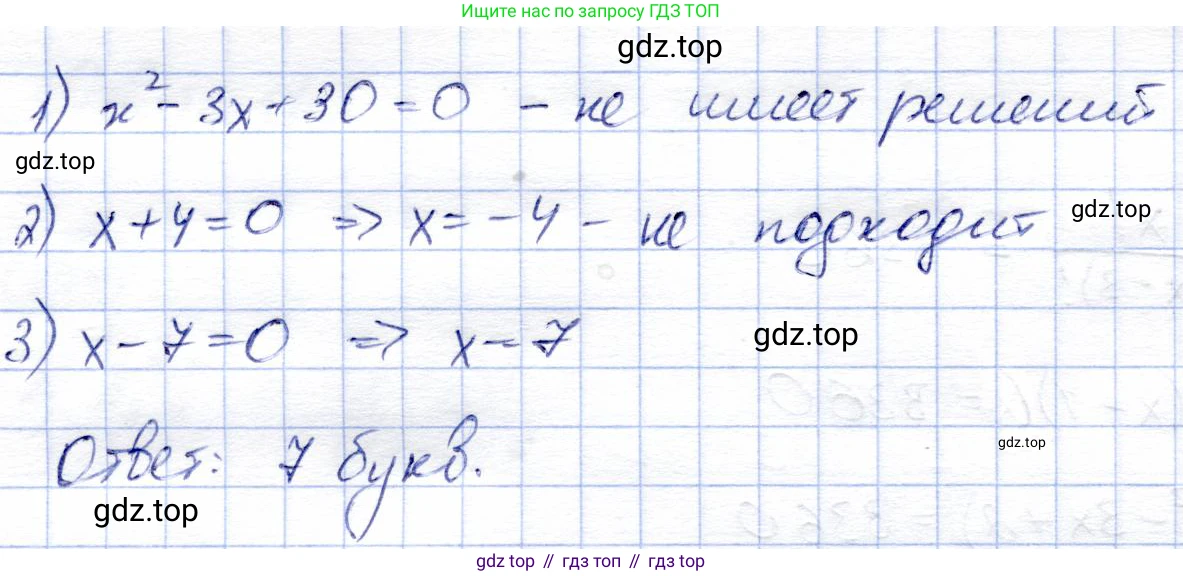 Ищите нас по запросу ГДЗ ТОП
gdz.top
1) x² - 3x + 30 = 0 - не имеет решений
gdz.top
2) x + 4 = 0 => x = -4 - не подходит
gdz.top
3) x - 7 = 0 => x = 7
gdz.top
gdz.top
Ответ: 7 букв.
gdz.top
gdz.top // гдз топ // gdz.top